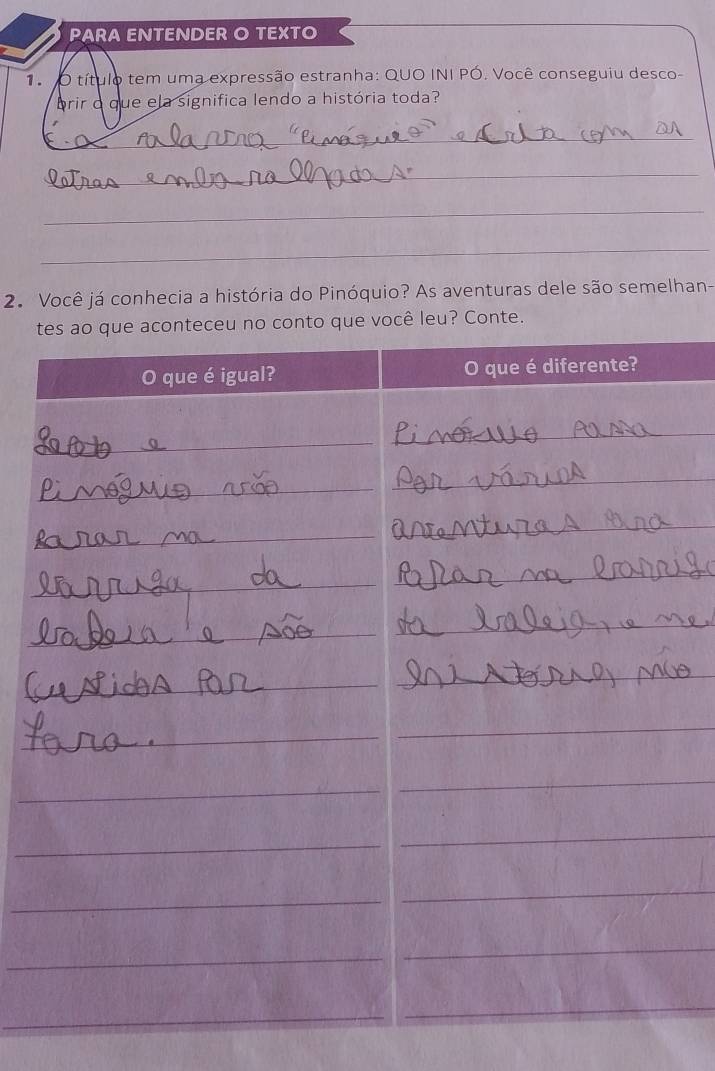 PARA ENTENDER O TEXTO
1. O título tem uma expressão estranha: QUO INI PÓ. Você conseguiu desco-
brir o que ela significa lendo a história toda?
É. a palavra "Pinóquio" escrita com as
letras embaralhadas.
2. Você já conhecia a história do Pinóquio? As aventuras dele são semelhan-
tes ao que aconteceu no conto que você leu? Conte.
O que é igual?
O que é diferente?
Gepeto e
Pinóquio vão
parar na
barriga da
baleia e são
cuspidos para
fora.
Pinóquio passa
por várias
aventuras para
parar na barriga
da baleia, e